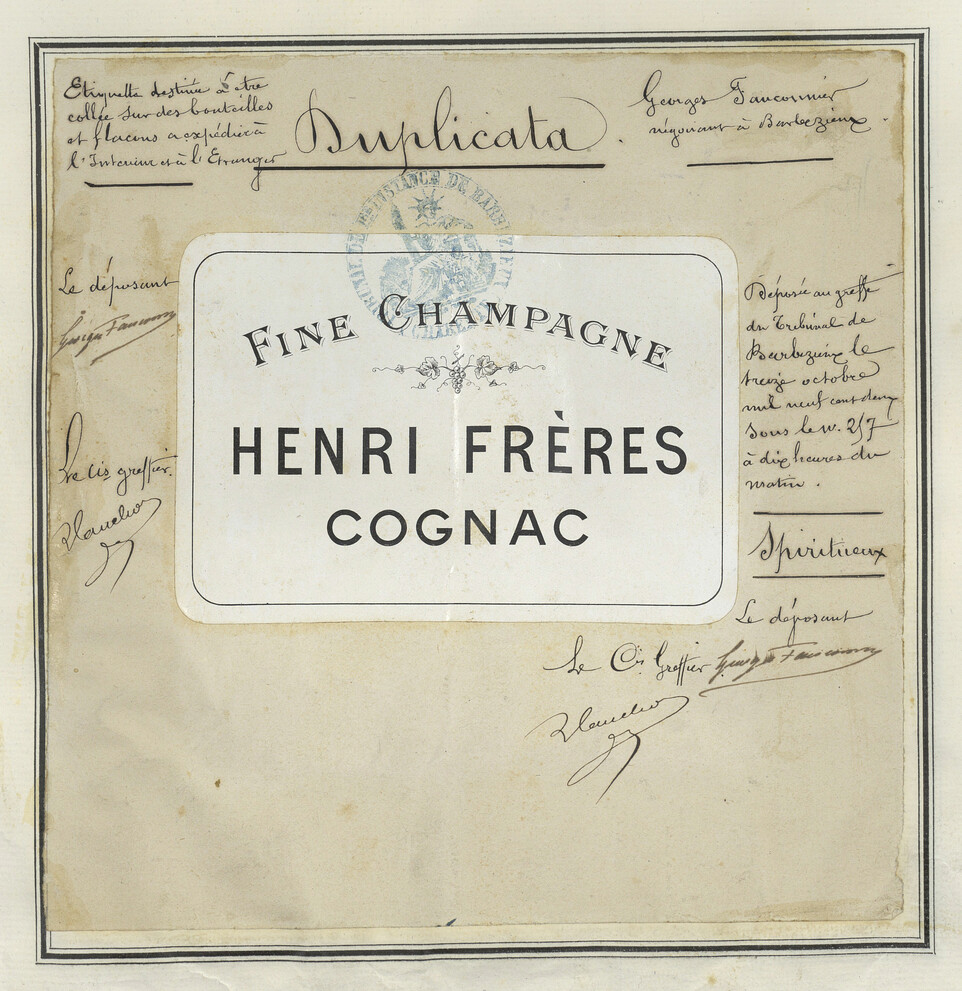 Etiquette destinée à être
collée sur des bouteilles
et flacons a expédier à
l'Interieur et à l'Etranger
Duplicata.
Georges Fauconnier
négociant à Barbezieux.
TRIBUNAL DE 1re INSTANCE DE BARBEZIEUX
Le déposant
Georges Fauconnier
Le Cis greffier.
FINE CHAMPAGNE
HENRI FRÈRES
COGNAC
Déposée au greffe
du Tribunal de
Barbezieux le
treize octobre
mil neuf cent deux
sous le N. 257
à dix heures du
matin.
Spiritueux
Le déposant
Le Cis Greffier Georges Fauconnier